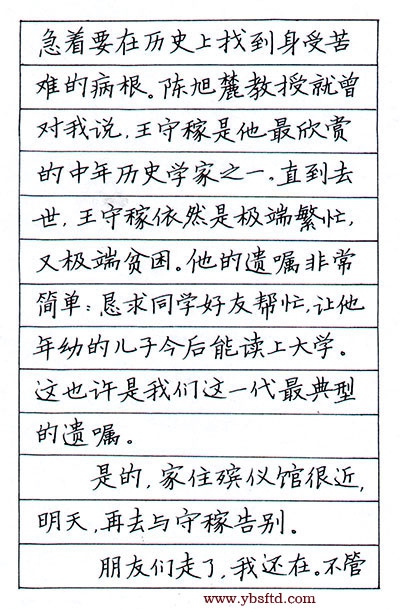 急着要在历史上找到身受苦
难的病根。陈旭麓教授就曾
对我说,王守稼是他最欣赏
的中年历史学家之一。直到去
世,王守稼依然是极端繁忙,
又极端贫困。他的遗嘱非常
简单:恳求同学好友帮忙,让他
年幼的儿子今后能读上大学。
这也许是我们这一代最典型
的遗嘱。
是的,家住殡仪馆很近,
明天,再去与守稼告别。
朋友们走了,我还在。不管
www.ybsftd.com